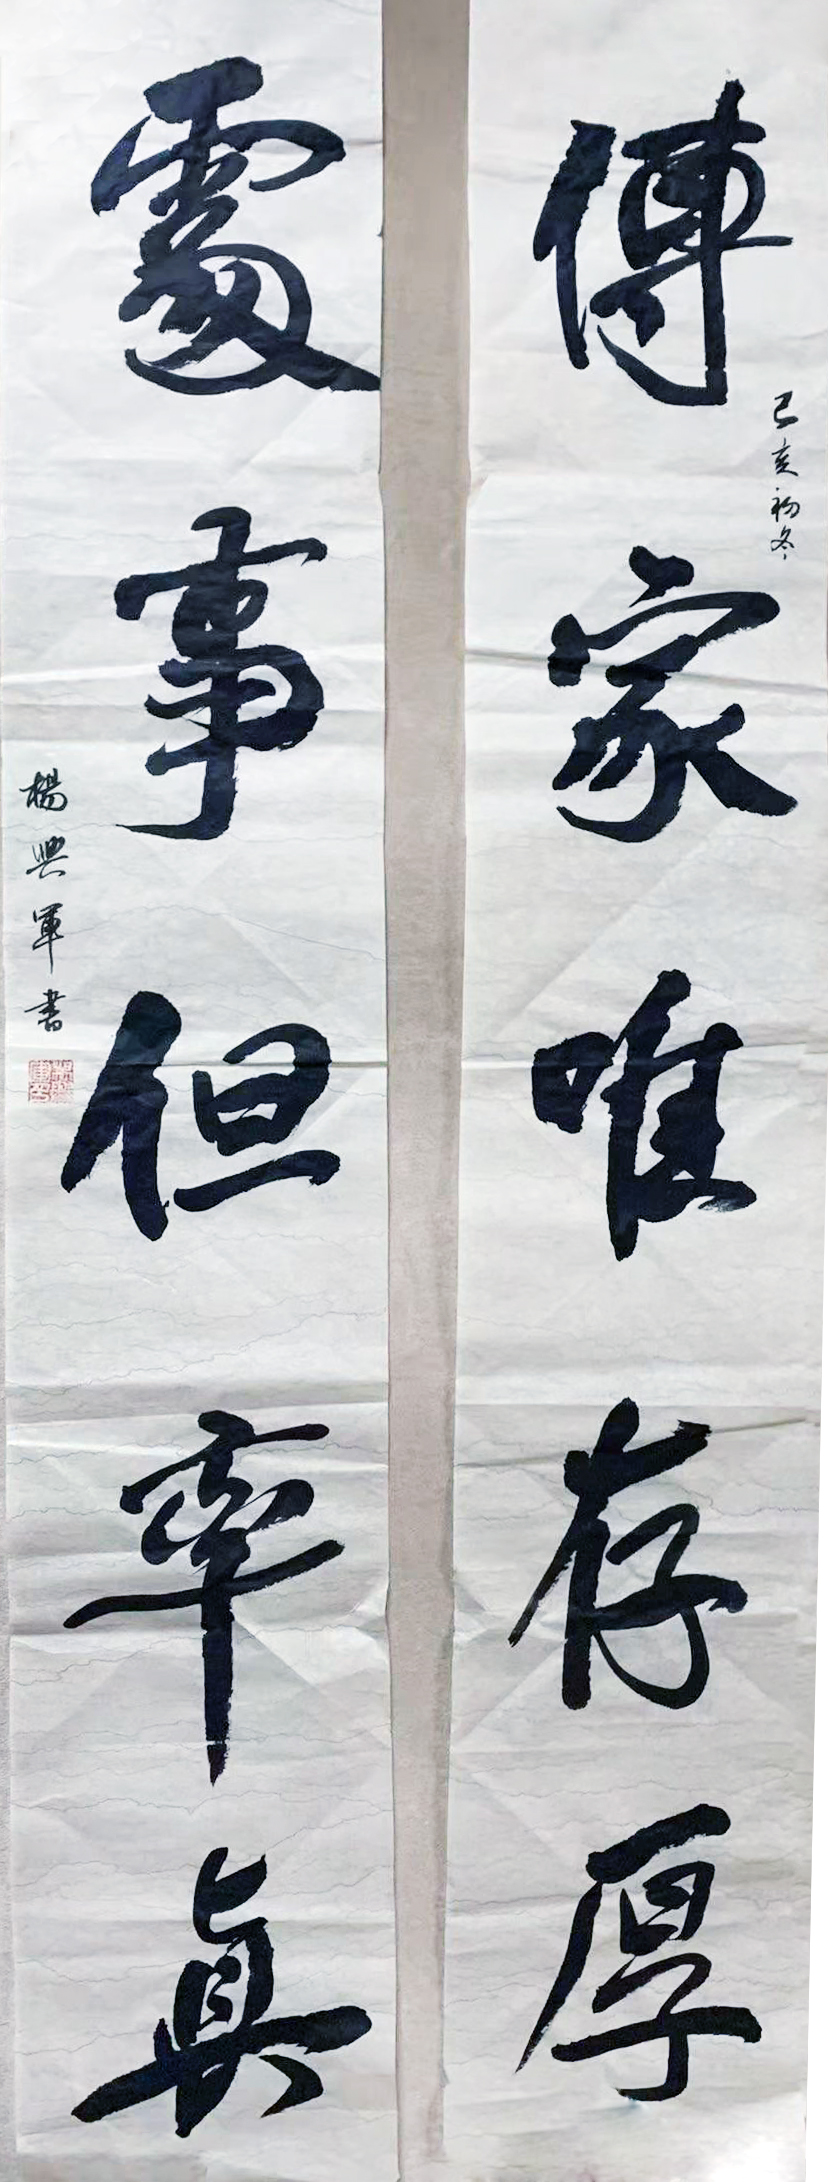 傳家唯存厚
己亥初冬
處事但率真
楊興軍書